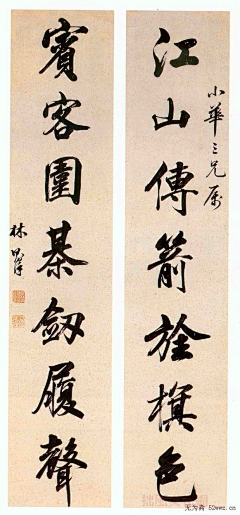 小華三兄屬
江山傳箭旌旗色
賓客圍棊劒履聲
林則徐
52wwz.cn